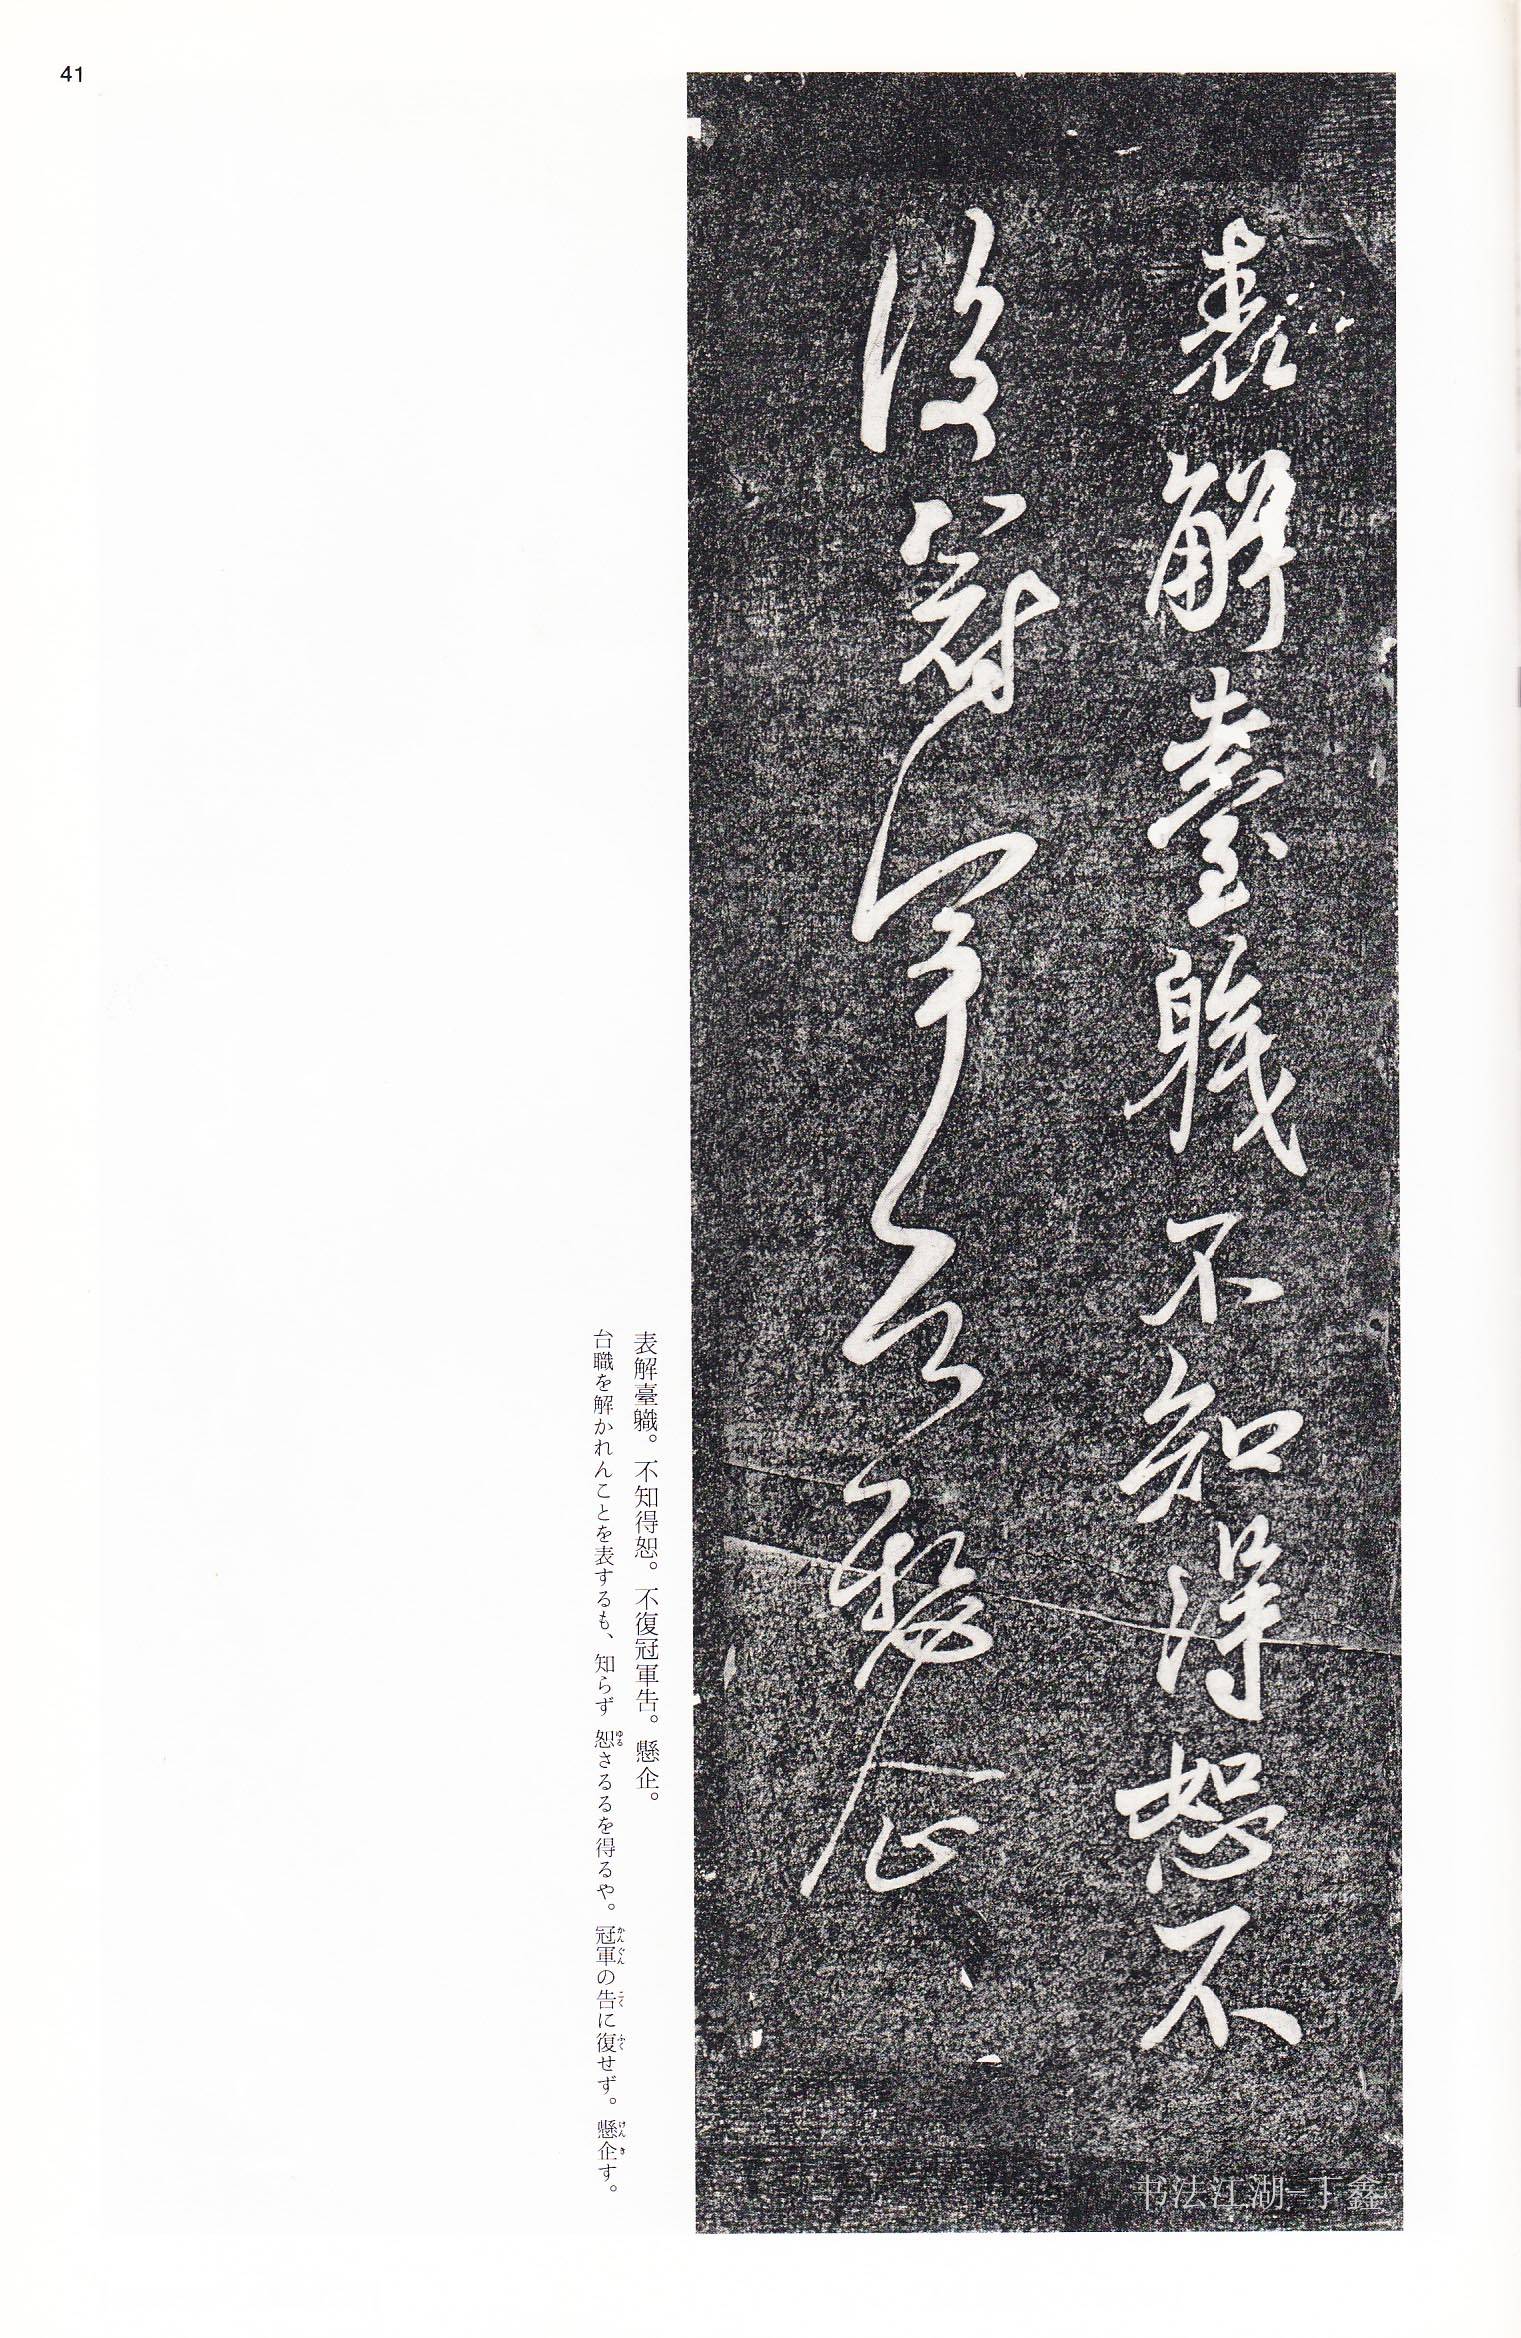 41
表解臺職不知得恕不
復冠軍告懸企
表解臺軄。不知得恕。不復冠軍告。懸企。
台職を解かれんことを表するも、知らず恕さるるを得るや。冠軍の告に復せず。懸企す。
ゆる
かんぐん
こく
ふく
けんき
书法江湖-丁鑫